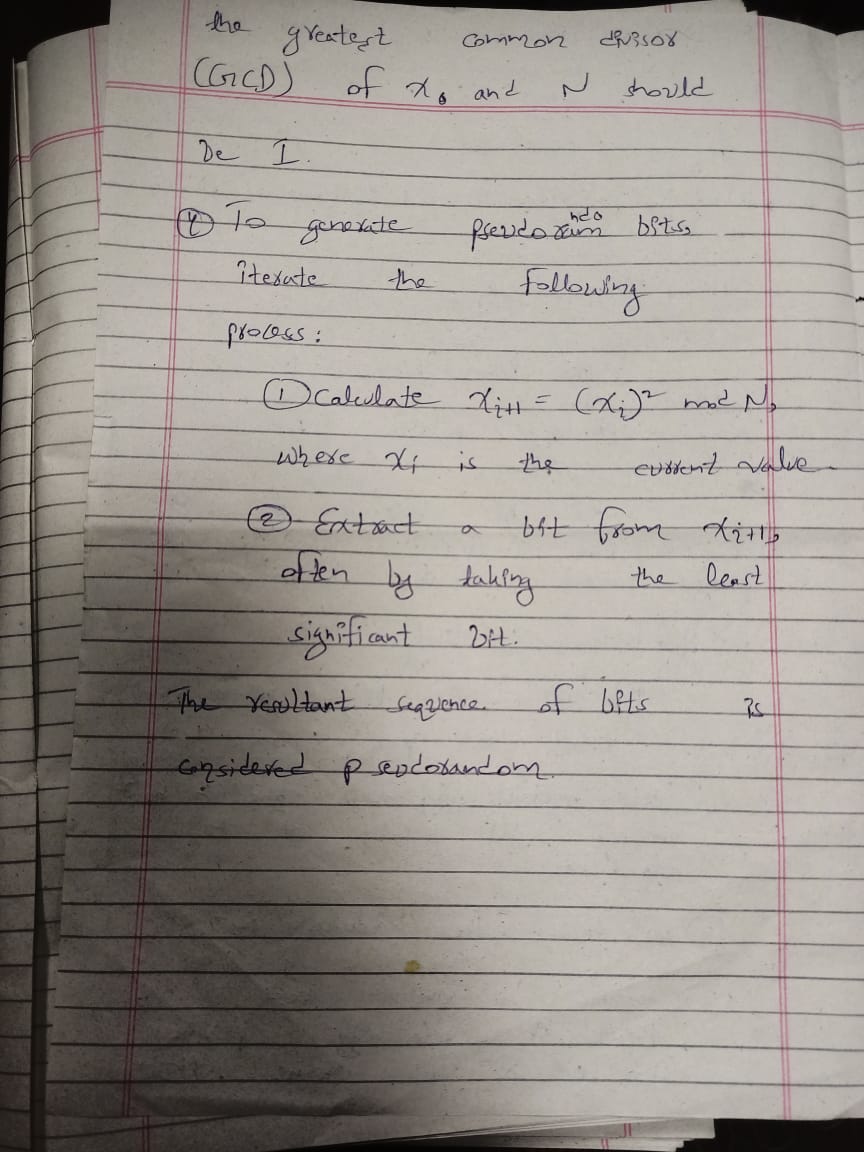 the greatest common divisor
(GCD) of x₀ and N should
be 1.
④ To generate pseudorandom bits,
iterate the following
process:
① Calculate xᵢ₊₁ = (xᵢ)² mod N,
where xᵢ is the current value.
② Extract a bit from xᵢ₊₁,
often by taking the least
significant bit.
The resultant sequence of bits is
considered pseudorandom.